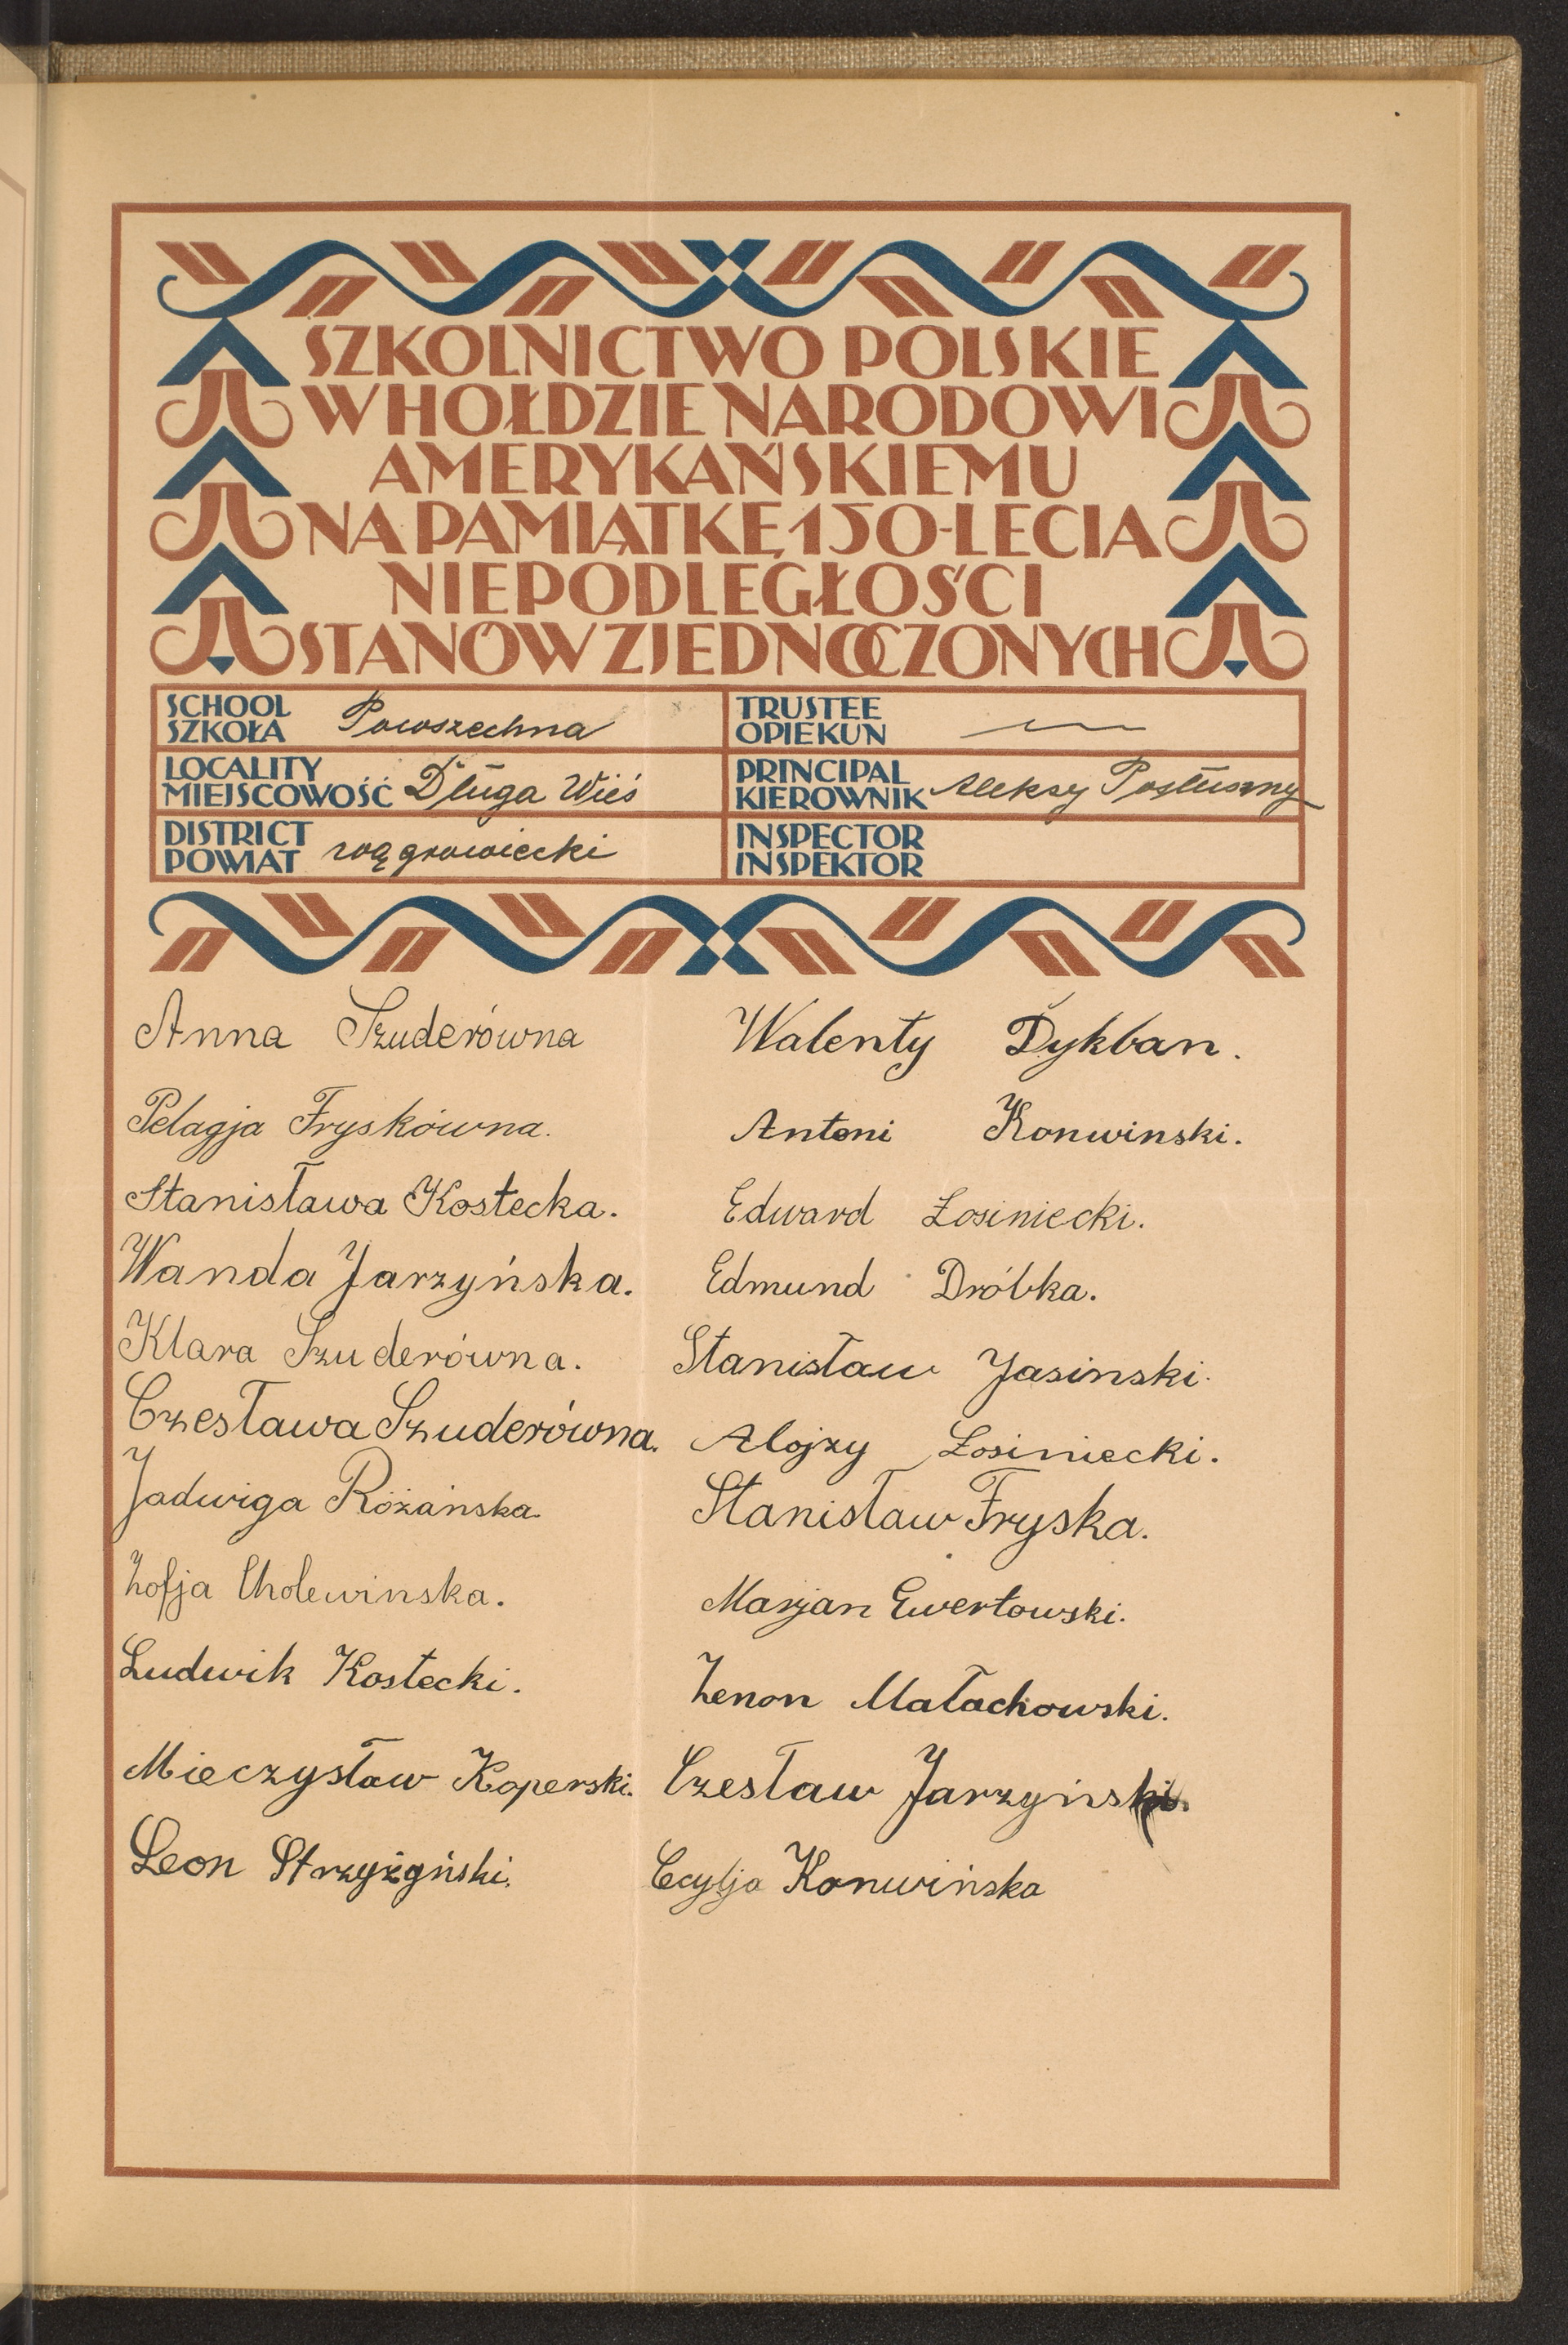 SZKOLNICTWO POLSKIE
W HOŁDZIE NARODOWI
AMERYKAŃSKIEMU
NA PAMIĄTKĘ 150-LECIA
NIEPODLEGŁOŚCI
STANÓW ZJEDNOCZONYCH
SCHOOL
SZKOŁA Powszechna
TRUSTEE
OPIEKUN
LOCALITY
MIEJSCOWOŚĆ Długa Wieś
PRINCIPAL
KIEROWNIK Aleksy Posłuszny
DISTRICT
POWIAT wągrowiecki
INSPECTOR
INSPEKTOR
Anna Szuderówna
Pelagja Fryskówna.
Stanisława Kostecka.
Wanda Jarzyńska.
Klara Szuderówna.
Czesława Szuderówna.
Jadwiga Różańska.
Zofja Cholewinska.
Ludwik Kostecki.
Mieczysław Koperski.
Leon Strzyżyński.
Walenty Dykban.
Antoni Konwinski.
Edward Łosiniecki.
Edmund Dróbka.
Stanisław Jasinski.
Alojzy Łosiniecki.
Stanisław Fryska.
Marjan Ewertowski.
Zenon Małachowski.
Czesław Jarzyński.
Cecylja Konwińska